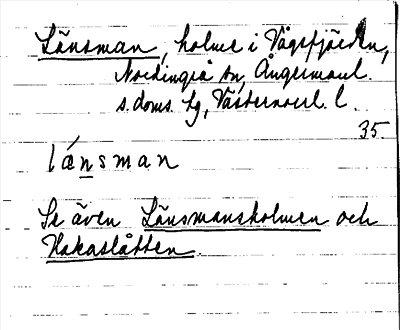 Länsman, holme i Vägsfjärden,
Nordingrå sn, Ångermanl.
s. doms. lg, Västernorrl. l.
35.
länsman
Se även Länsmansholmen och
Kakaslåtten.